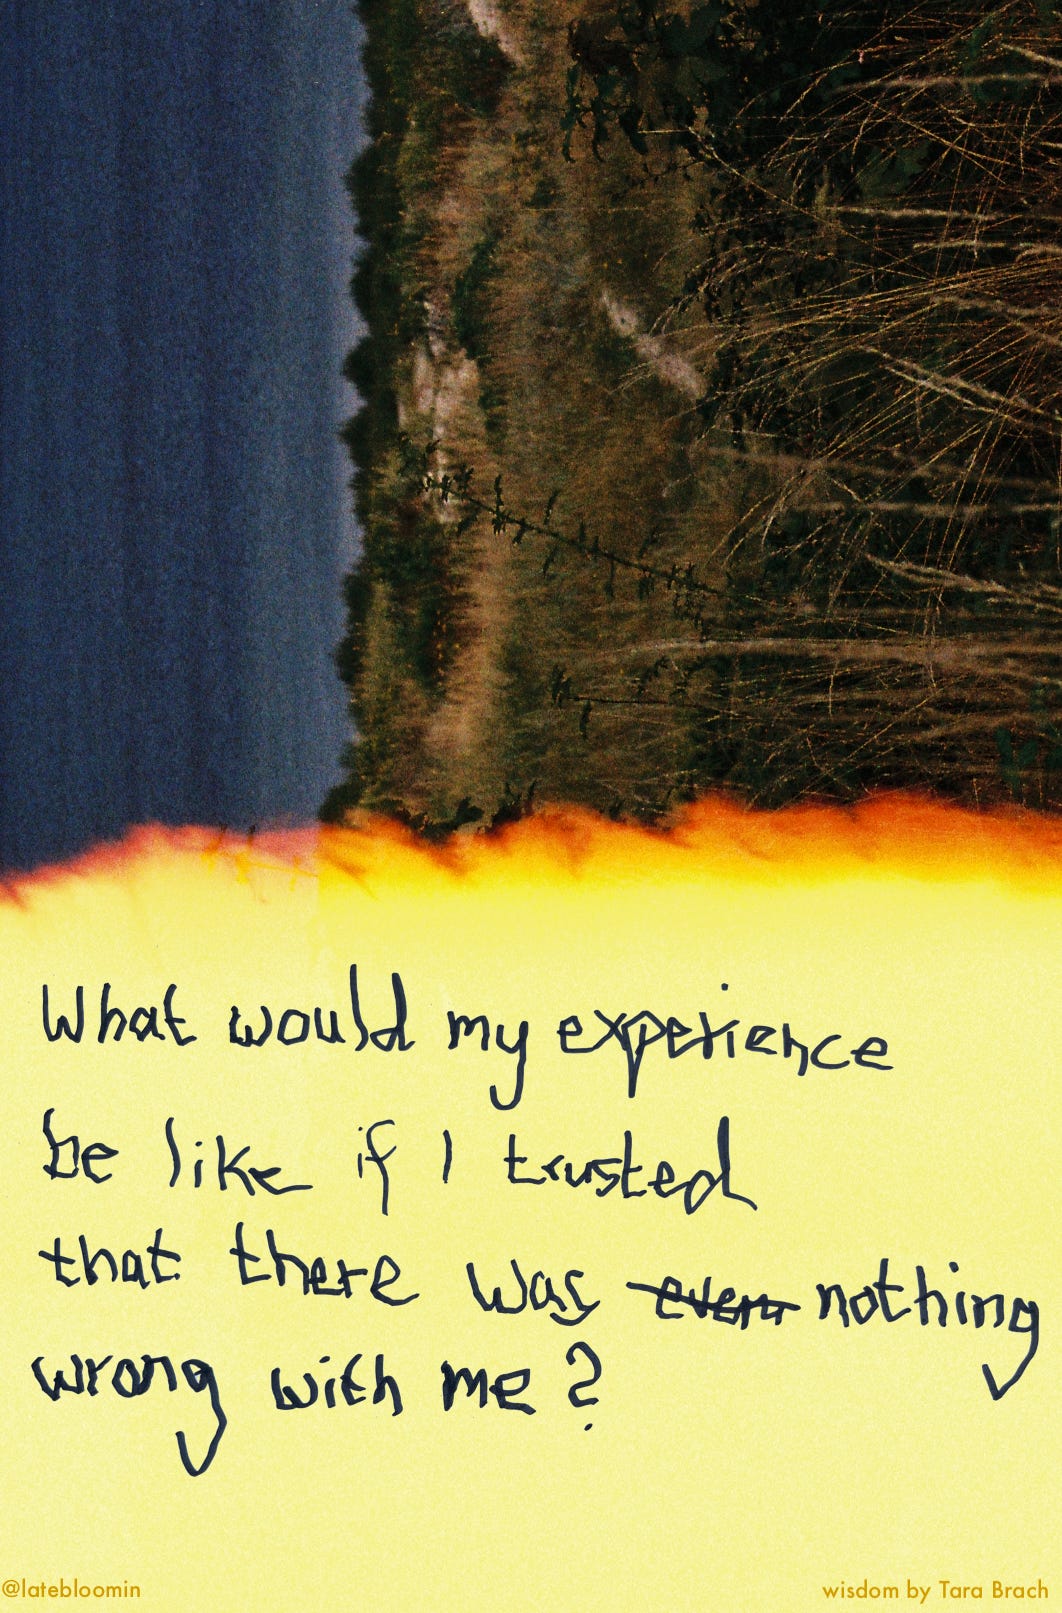 What would my experience
be like if I trusted
that there was even nothing
wrong with me?
@latebloomin
wisdom by Tara Brach